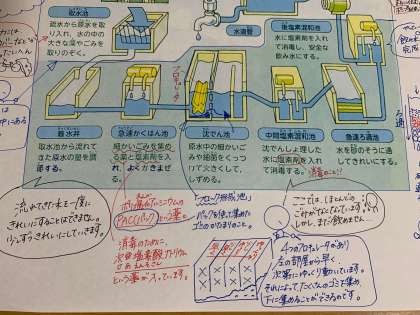 取水池
疏水から原水を取
り入れ、水の中の
大きな藻やごみを
取りのぞく。
水道管
後塩素混和池
水に塩素剤を入れ
て消毒し、安全な
飲み水にする。
着水井
取水池から流れて
きた原水の量を調
節する。
急速かくはん池
細かいごみを集め
る薬と塩素剤を入
れ、よくかきまぜる。
沈でん池
原水中の細かいご
みや細菌をくっつ
けて大きくして、し
ずめる。
中間塩素混和池
沈でんしょ理した
水に塩素剤を入れ
て消毒する。
消毒のこと!!
急速ろ過池
水を砂のそうに通
してきれいにする。
流れてきた水を一度に
きれいにすることはできません。
少しずつきれいにしていきます。
ポリ塩化アルミニウムの
PAC(パック)という薬。
消毒のために、
次亜塩素酸ナトリウム
という薬が入っています。
「フロック形成池」
パックを使って集めた
ゴミのかたまりのこと。
ここでは、ほとんどの
しかし、まだ飲めません。
4つのフロキュレータがあり
左の部屋から早く、
次第にゆっくり動いています。
それによってたくさんのゴミを集め、
下に集めることができるのです。